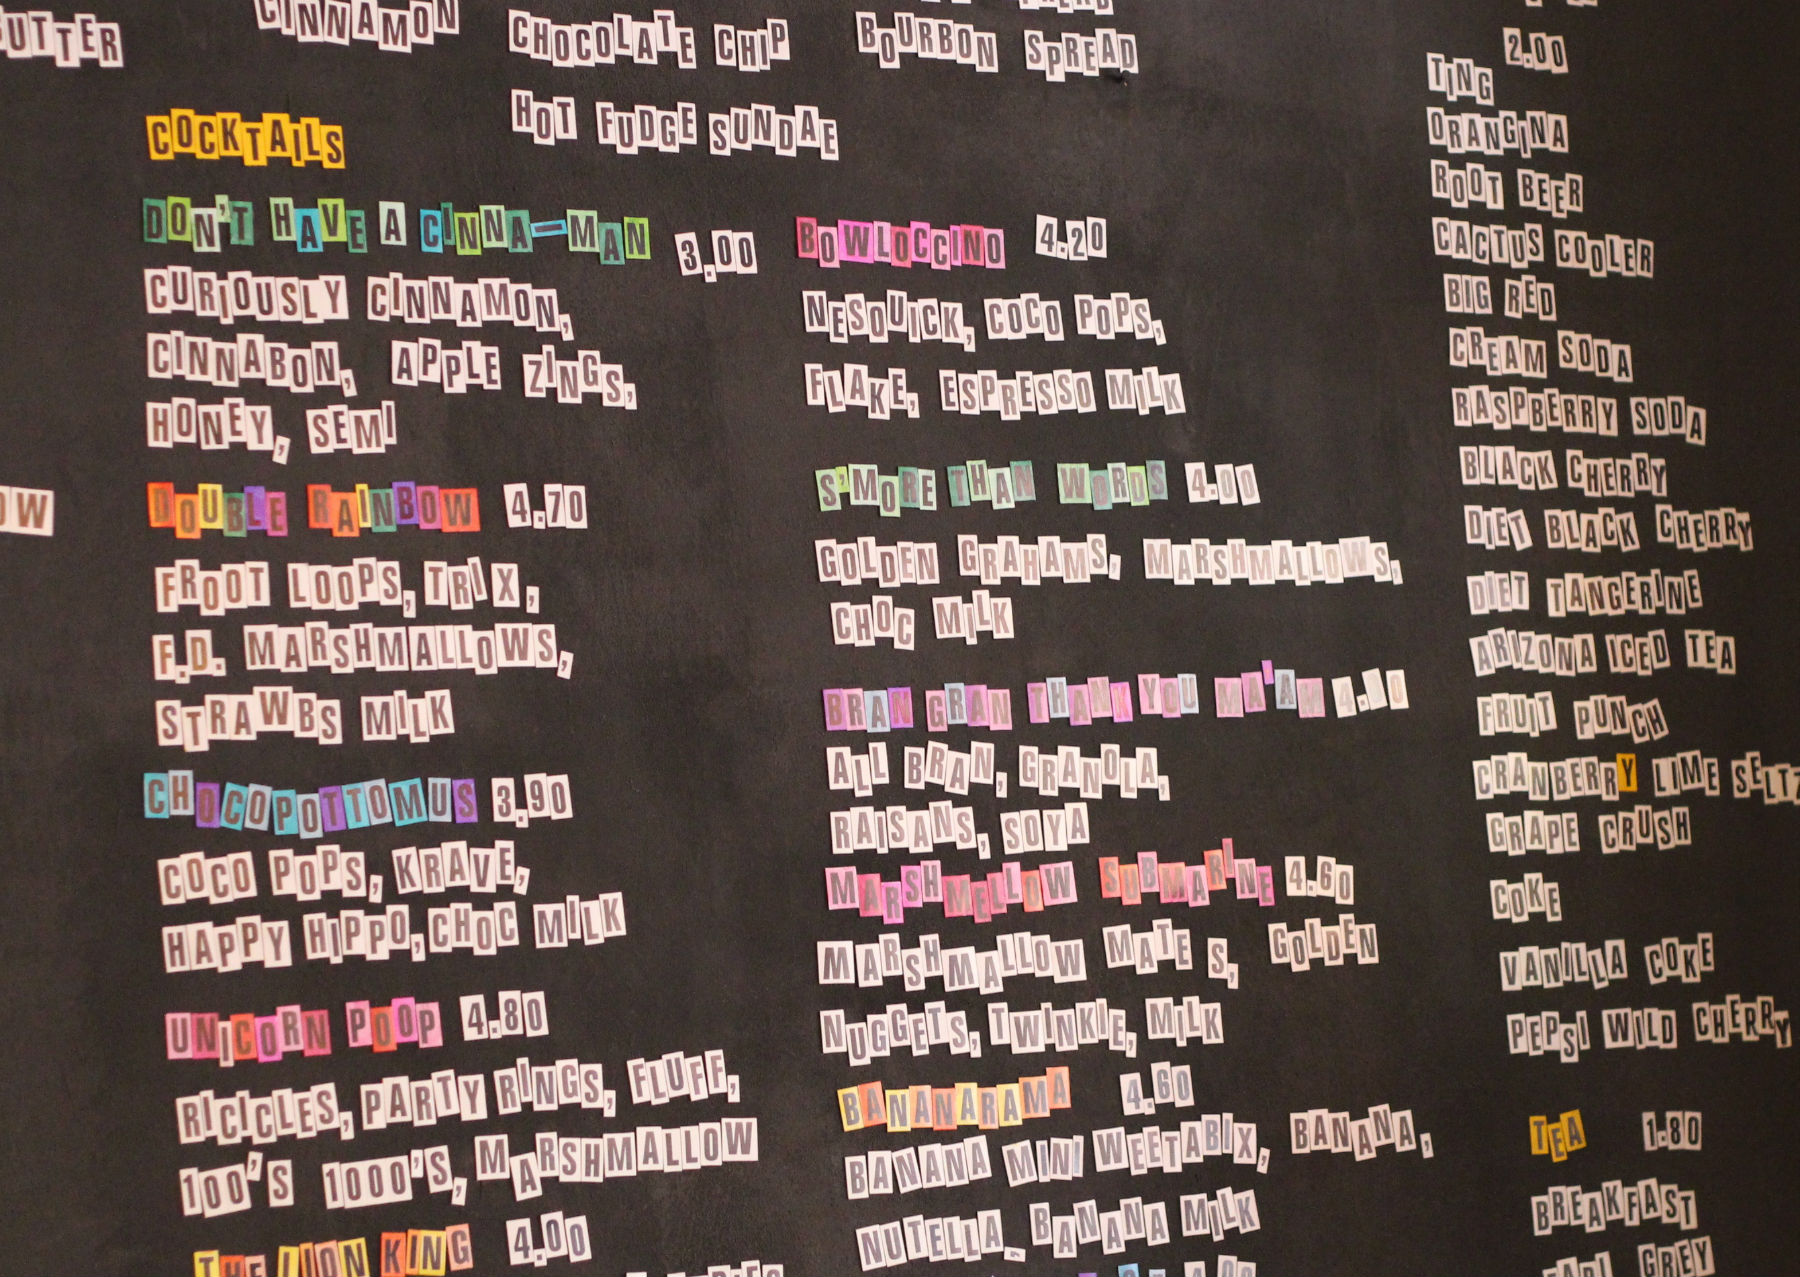 CINNAMON
CHOCOLATE CHIP
HOT FUDGE SUNDAE
BOURBON SPREAD
COCKTAILS
DON'T HAVE A CINNA-MAN 3.00
CURIOUSLY CINNAMON,
CINNABON, APPLE ZINGS,
HONEY, SEMI
DOUBLE RAINBOW 4.70
FROOT LOOPS, TRIX,
F.D. MARSHMALLOWS,
STRAWBS MILK
CHOCOPOTTOMUS 3.90
COCO POPS, KRAVE,
HAPPY HIPPO, CHOC MILK
UNICORN POOP 4.80
RICICLES, PARTY RINGS, FLUFF,
100'S 1000'S, MARSHMALLOW
THE LION KING 4.00
BOWLOCCINO 4.20
NESQUICK, COCO POPS,
FLAKE, ESPRESSO MILK
S'MORE THAN WORDS 4.00
GOLDEN GRAHAMS, MARSHMALLOWS,
CHOC MILK
BRAN GRAN THANK YOU MA'AM
ALL BRAN, GRANOLA,
RAISANS, SOYA
MARSHMELLOW SUBMARINE 4.60
MARSHMALLOW MATES, GOLDEN
NUGGETS, TWINKIE, MILK
BANANARAMA 4.60
BANANA MINI WEETABIX, BANANA,
NUTELLA, BANANA MILK
2.00
TING
ORANGINA
ROOT BEER
CACTUS COOLER
BIG RED
CREAM SODA
RASPBERRY SODA
BLACK CHERRY
DIET BLACK CHERRY
DIET TANGERINE
ARIZONA ICED TEA
FRUIT PUNCH
CRANBERRY LIME SELTZ
GRAPE CRUSH
COKE
VANILLA COKE
PEPSI WILD CHERRY
TEA 1.80
BREAKFAST
GREY